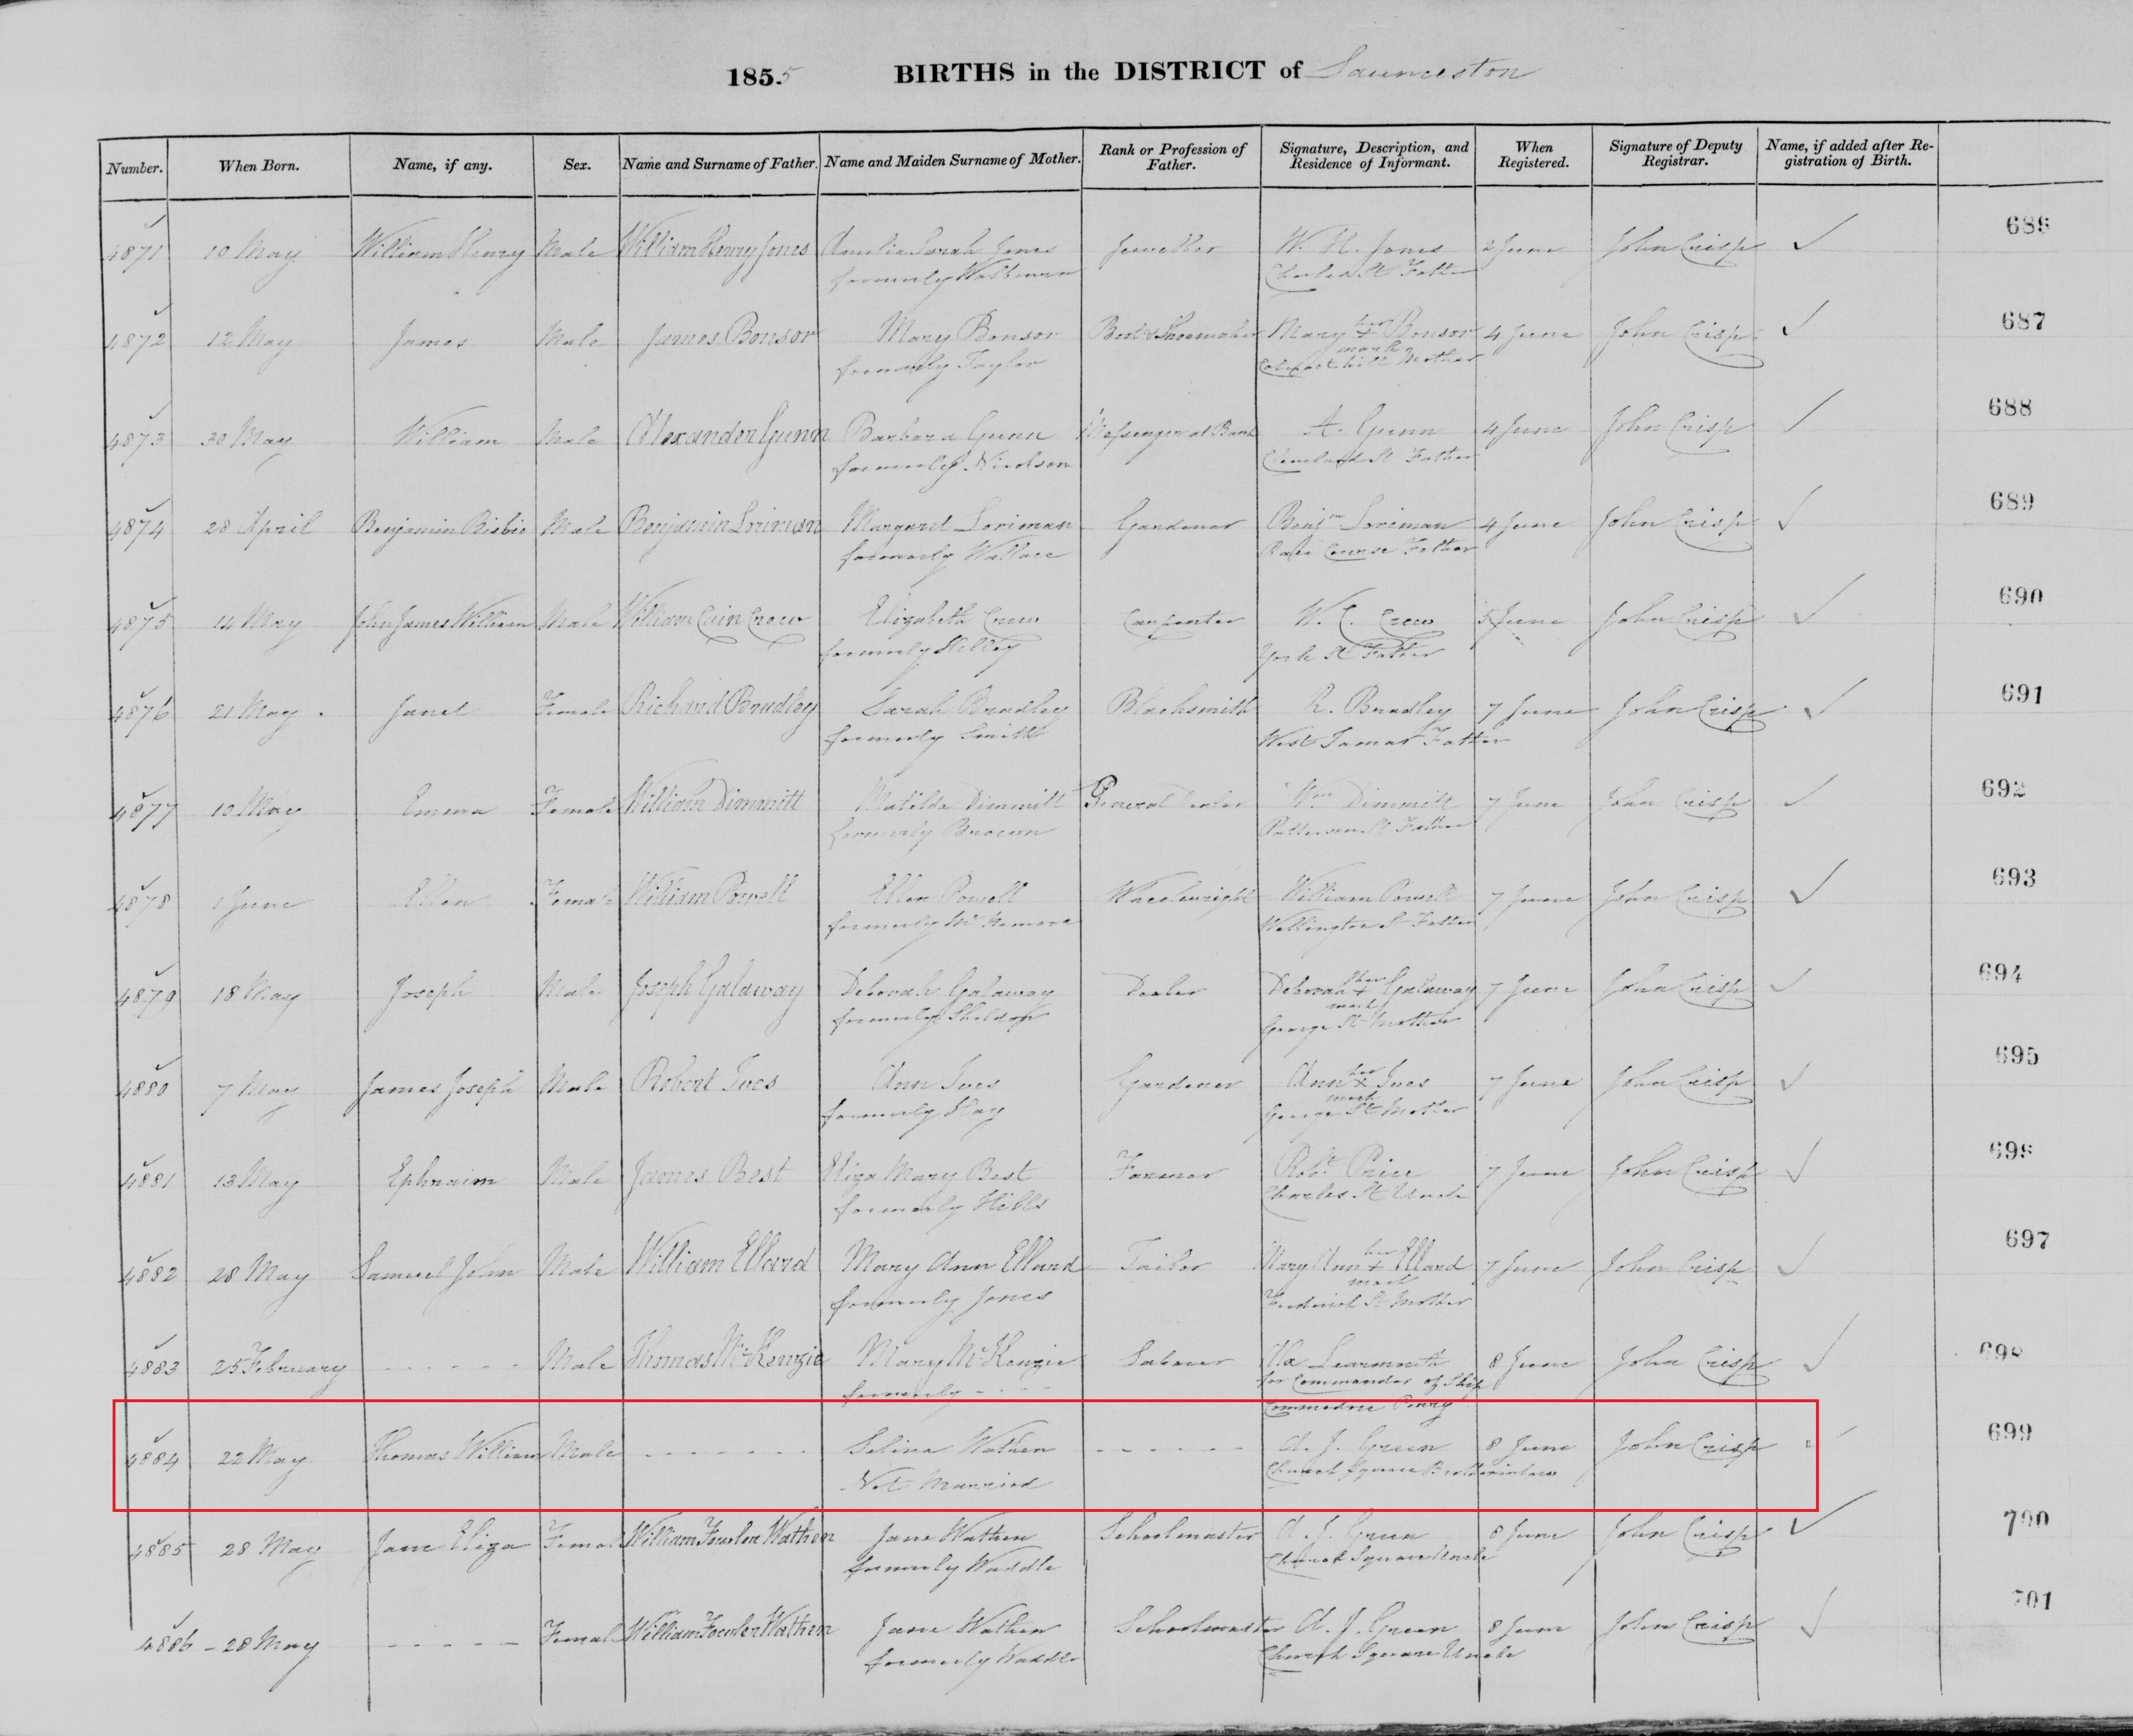 1855 BIRTHS in the DISTRICT of Launceston
Number. When Born. Name, if any. Sex. Name and Surname of Father. Name and Maiden Surname of Mother. Rank or Profession of Father. Signature, Description, and Residence of Informant. When Registered. Signature of Deputy Registrar. Name, if added after Registration of Birth.
686
4871 10 May William Henry Male William Henry Jones Amelia Sarah Jones Jeweller W. H. Jones 2 June John Crisp ✓
formerly Charles St Father
687
4872 12 May James Male James Bonsor Mary Bonsor Boot & Shoemaker Mary her + Bonsor 4 June John Crisp ✓
mark
formerly Taylor Mother
688
4873 30 May William Male Alexander Gunn Barbara Gunn Messenger at Bank A. Gunn 4 June John Crisp ✓
formerly Nicolson Cleveland St Father
689
4874 28 April Benjamin Bisbie Male Benjamin Loriman Margaret Loriman Gardener Benjn Loriman 4 June John Crisp ✓
formerly Wallace Race Course Father
690
4875 14 May John James William Male William Cain Crew Elizabeth Crew Carpenter W. C. Crew 5 June John Crisp ✓
formerly Kelley York St Father
691
4876 21 May Janet Female Richard Bradley Sarah Bradley Blacksmith R. Bradley 7 June John Crisp ✓
formerly Smith West Tamar Father
692
4877 Emma Female William Dimmitt Matilda Dimmitt General Dealer Wm Dimmitt 7 June John Crisp ✓
formerly Brown Patterson St Father
693
4878 1 June Ellen Female William Powell Ellen Powell Wheelwright William Powell 7 June John Crisp ✓
formerly Wellington St Father
694
4879 18 May Joseph Male Joseph Galaway Deborah Galaway Dealer Deborah her + Galaway 7 June John Crisp ✓
mark
formerly Sheldon George St Mother
695
4880 7 May James Joseph Male Robert Ives Ann Ives Gardener Ann her x Ives 7 June John Crisp ✓
mark
formerly Hay George St Mother
696
4881 13 May Ephraim Male James Best Eliza Mary Best Farmer Robt Price 7 June John Crisp ✓
formerly Hills Charles St Uncle
697
4882 28 May Samuel John Male William Ellard Mary Ann Ellard Tailor Mary Ann her + Ellard 7 June John Crisp ✓
mark
formerly Jones Frederick St Mother
698
4883 25 February - - - - - - Male Thomas McKenzie Mary McKenzie Labourer Learmonth 8 June John Crisp ✓
for Commander of Ship
formerly - - - - Commodore Perry
699
4884 22 May Thomas William Male - - - - - - - Selina Wathen - - - - - - A. J. Green 8 June John Crisp ✓
Not Married Church Square Brotherinlaw
700
4885 28 May Jane Eliza Female William Fowler Wathen Jane Wathen Schoolmaster A. J. Green 8 June John Crisp ✓
formerly Waddle Church Square Uncle
701
4886 - 28 May - - - - - Female William Fowler Wathen Jane Wathen Schoolmaster A. J. Green 8 June John Crisp ✓
formerly Waddle Church Square Uncle